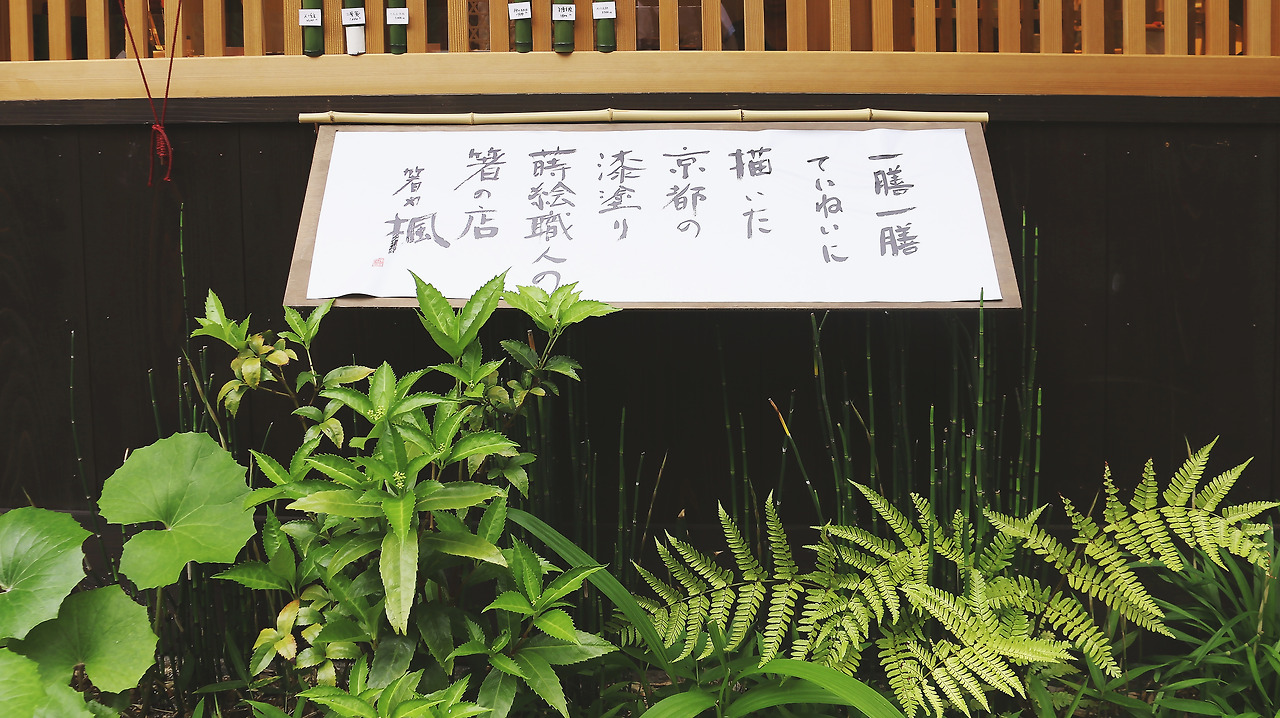 一膳一膳
ていねいに
描いた
京都の
漆塗り
蒔絵職人の
箸の店
箸や
楓